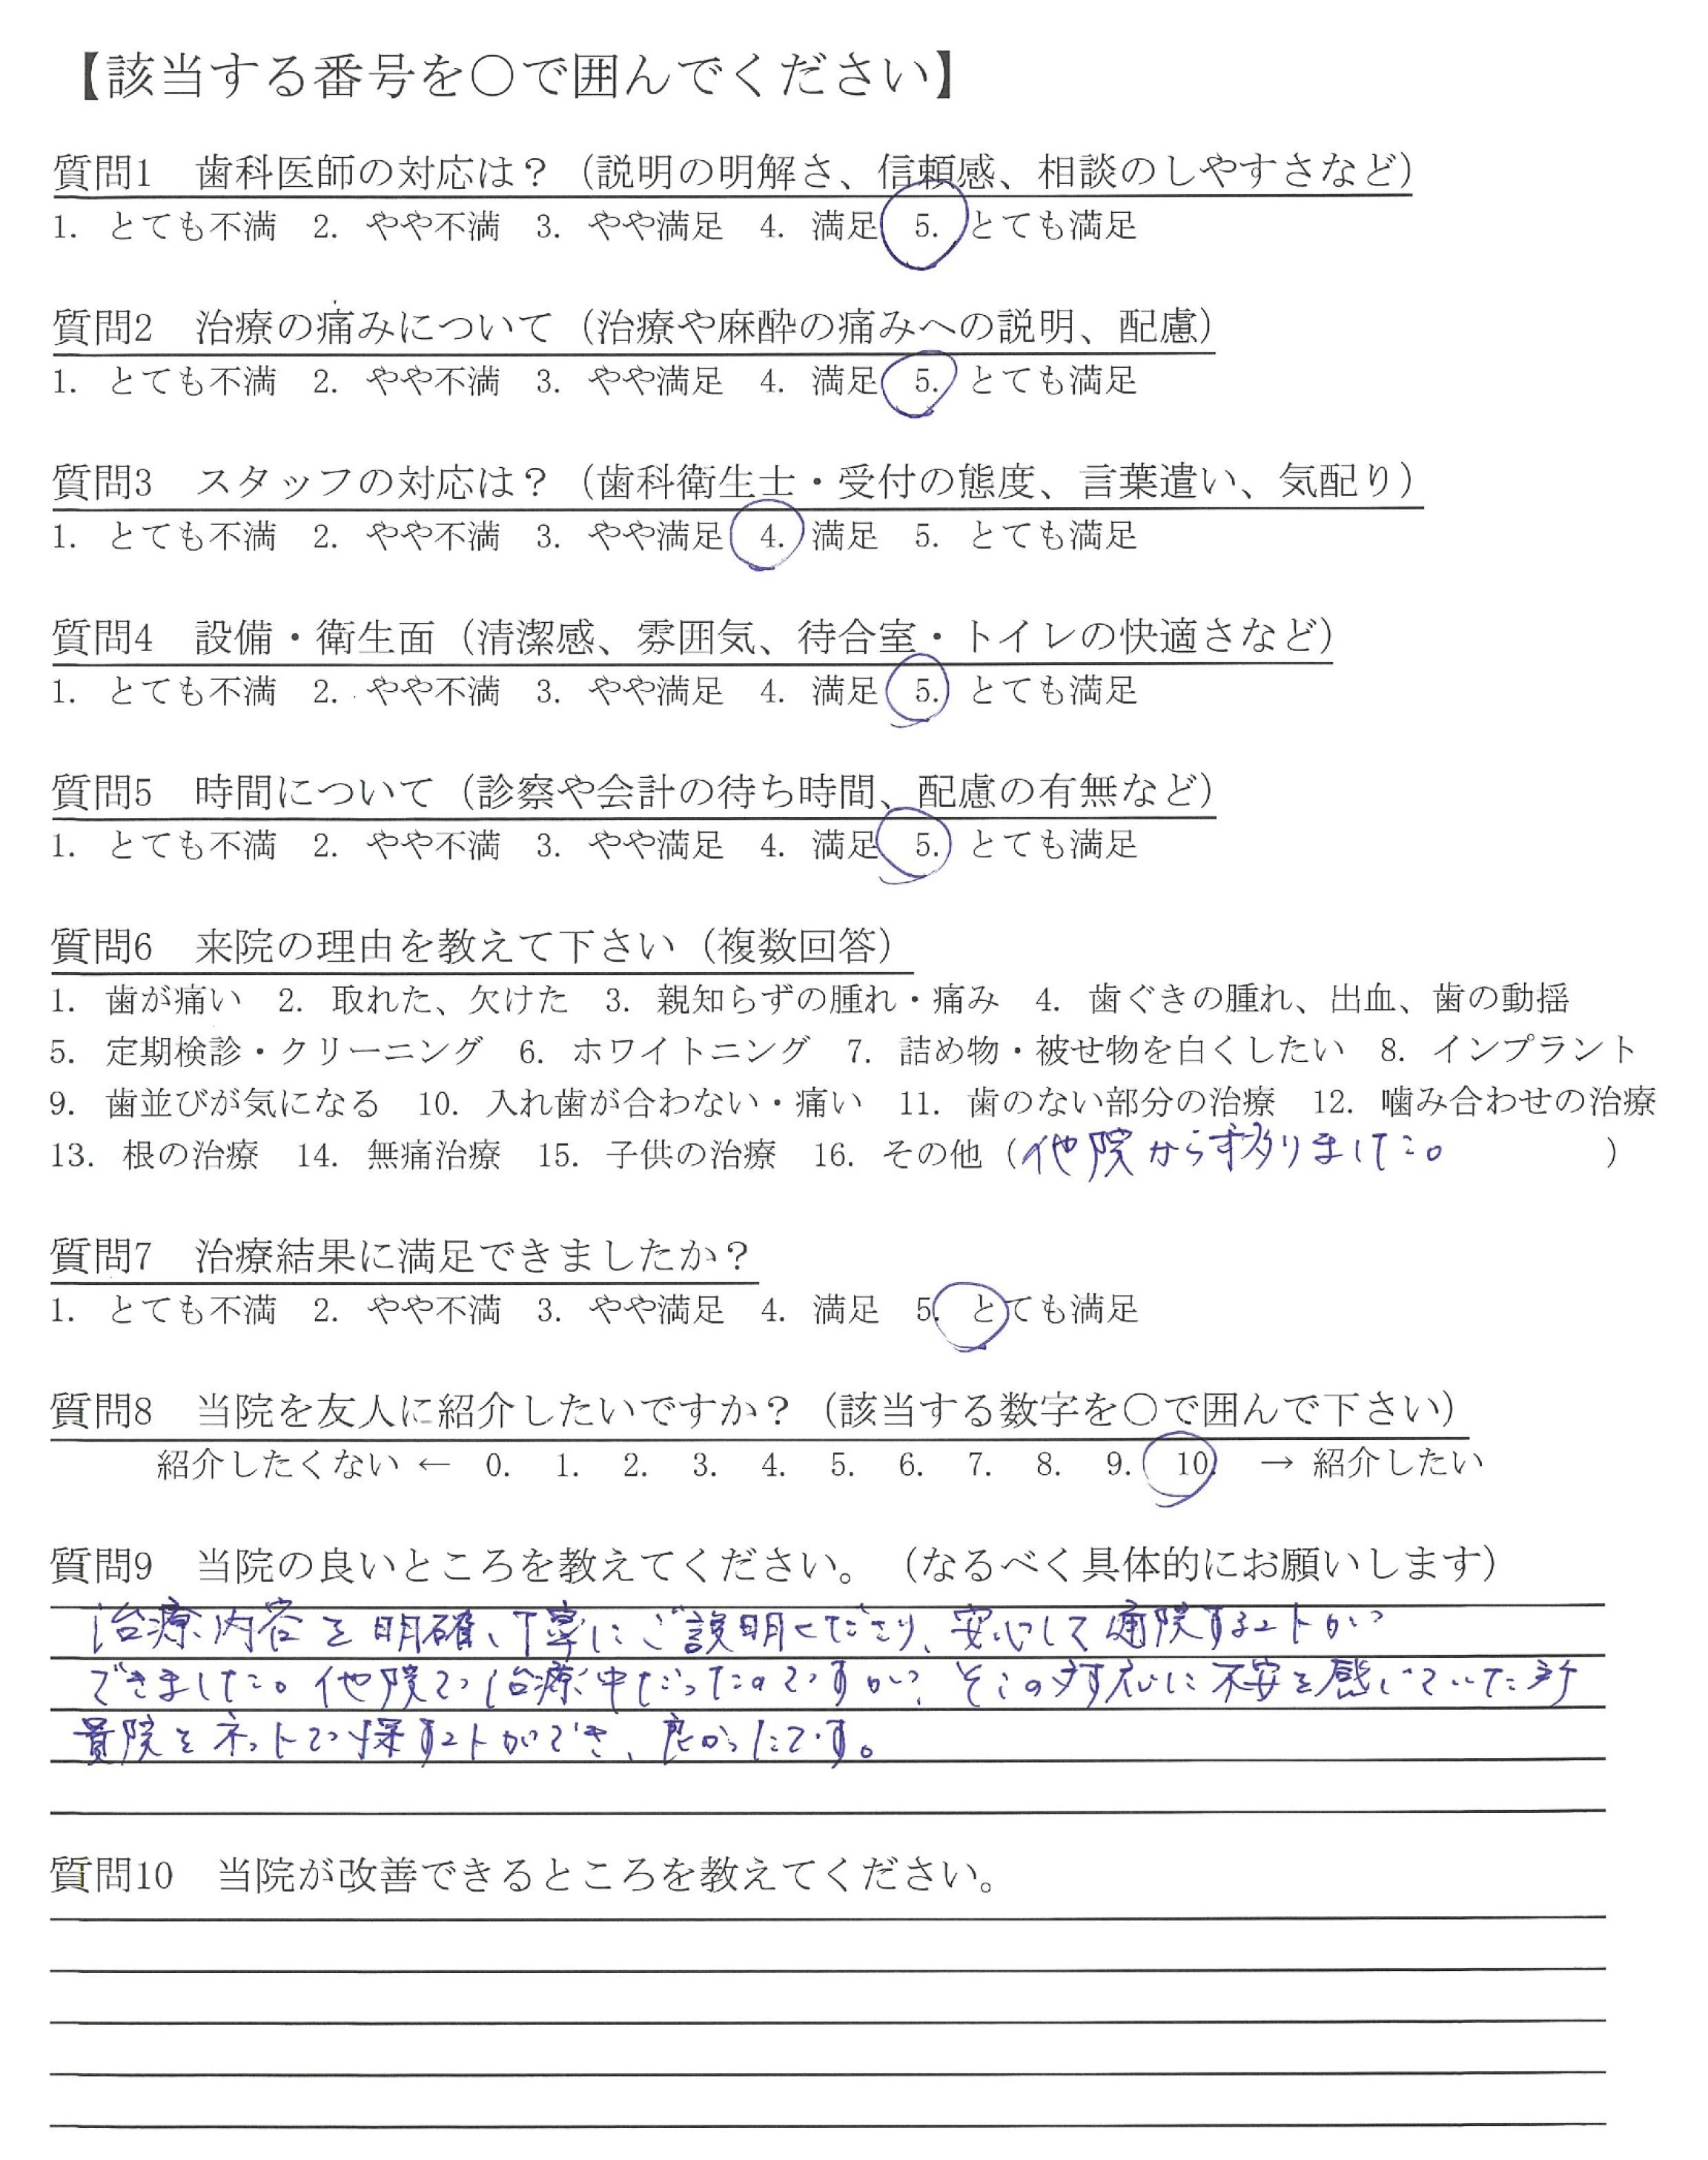 【該当する番号を〇で囲んでください】
質問1　歯科医師の対応は？（説明の明解さ、信頼感、相談のしやすさなど）
1. とても不満　2. やや不満　3. やや満足　4. 満足　5. とても満足
質問2　治療の痛みについて（治療や麻酔の痛みへの説明、配慮）
1. とても不満　2. やや不満　3. やや満足　4. 満足　5. とても満足
質問3　スタッフの対応は？（歯科衛生士・受付の態度、言葉遣い、気配り）
1. とても不満　2. やや不満　3. やや満足　4. 満足　5. とても満足
質問4　設備・衛生面（清潔感、雰囲気、待合室・トイレの快適さなど）
1. とても不満　2. やや不満　3. やや満足　4. 満足　5. とても満足
質問5　時間について（診察や会計の待ち時間、配慮の有無など）
1. とても不満　2. やや不満　3. やや満足　4. 満足　5. とても満足
質問6　来院の理由を教えて下さい（複数回答）
1. 歯が痛い　2. 取れた、欠けた　3. 親知らずの腫れ・痛み　4. 歯ぐきの腫れ、出血、歯の動揺
5. 定期検診・クリーニング　6. ホワイトニング　7. 詰め物・被せ物を白くしたい　8. インプラント
9. 歯並びが気になる　10. 入れ歯が合わない・痛い　11. 歯のない部分の治療　12. 噛み合わせの治療
13. 根の治療　14. 無痛治療　15. 子供の治療　16. その他（他院から移りました。　　　）
質問7　治療結果に満足できましたか？
1. とても不満　2. やや不満　3. やや満足　4. 満足　5. とても満足
質問8　当院を友人に紹介したいですか？（該当する数字を〇で囲んで下さい）
紹介したくない ← 0. 1. 2. 3. 4. 5. 6. 7. 8. 9. 10. → 紹介したい
質問9　当院の良いところを教えてください。（なるべく具体的にお願いします）
治療内容を明確、丁寧にご説明くださり、安心して通院することが
できました。他院で治療中だったのですが、そこの対応に不安を感じていた所
貴院をネットで探すことができ、良かったです。
質問10　当院が改善できるところを教えてください。